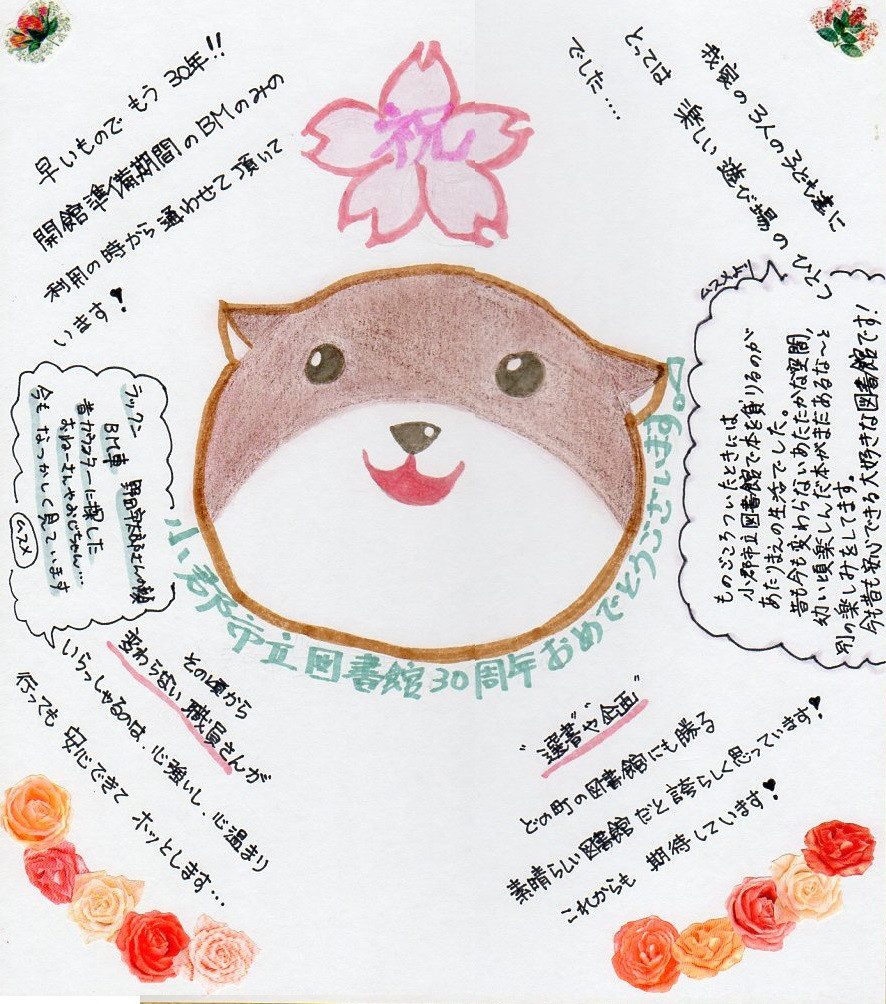 祝
早いもので もう 30年!!
開館準備期間のBMのみの
利用の時から通わせて頂いて
います♥
我家の3人の子ども達に
とっては 楽しい遊び場のひとつ
でした.....
ムスメより
ものごころついたときには
小郡市立図書館で本を借りるのが
あたりまえの生活でした。
昔も今も変わらないあたたかな空間、
幼い頃楽しんだ本がまだあるな〜と
別の楽しみをしてます。
今も昔も安心できる大好きな図書館です!
ラックン
BM車 野田宇太郎さんの顔
昔カウンターに探した
おねーさんやおじちゃん…
今も なつかしく見ています
ムスメ
小郡市立図書館30周年おめでとうございます。
その頃から
変わらない職員さんが
いらっしゃるのは、心強いし、心温まり
行っても 安心できて ホッとします…
"選書"や"企画"
どの町の図書館にも勝る
素晴らしい図書館だと誇らしく思っています♥
これからも 期待しています♥